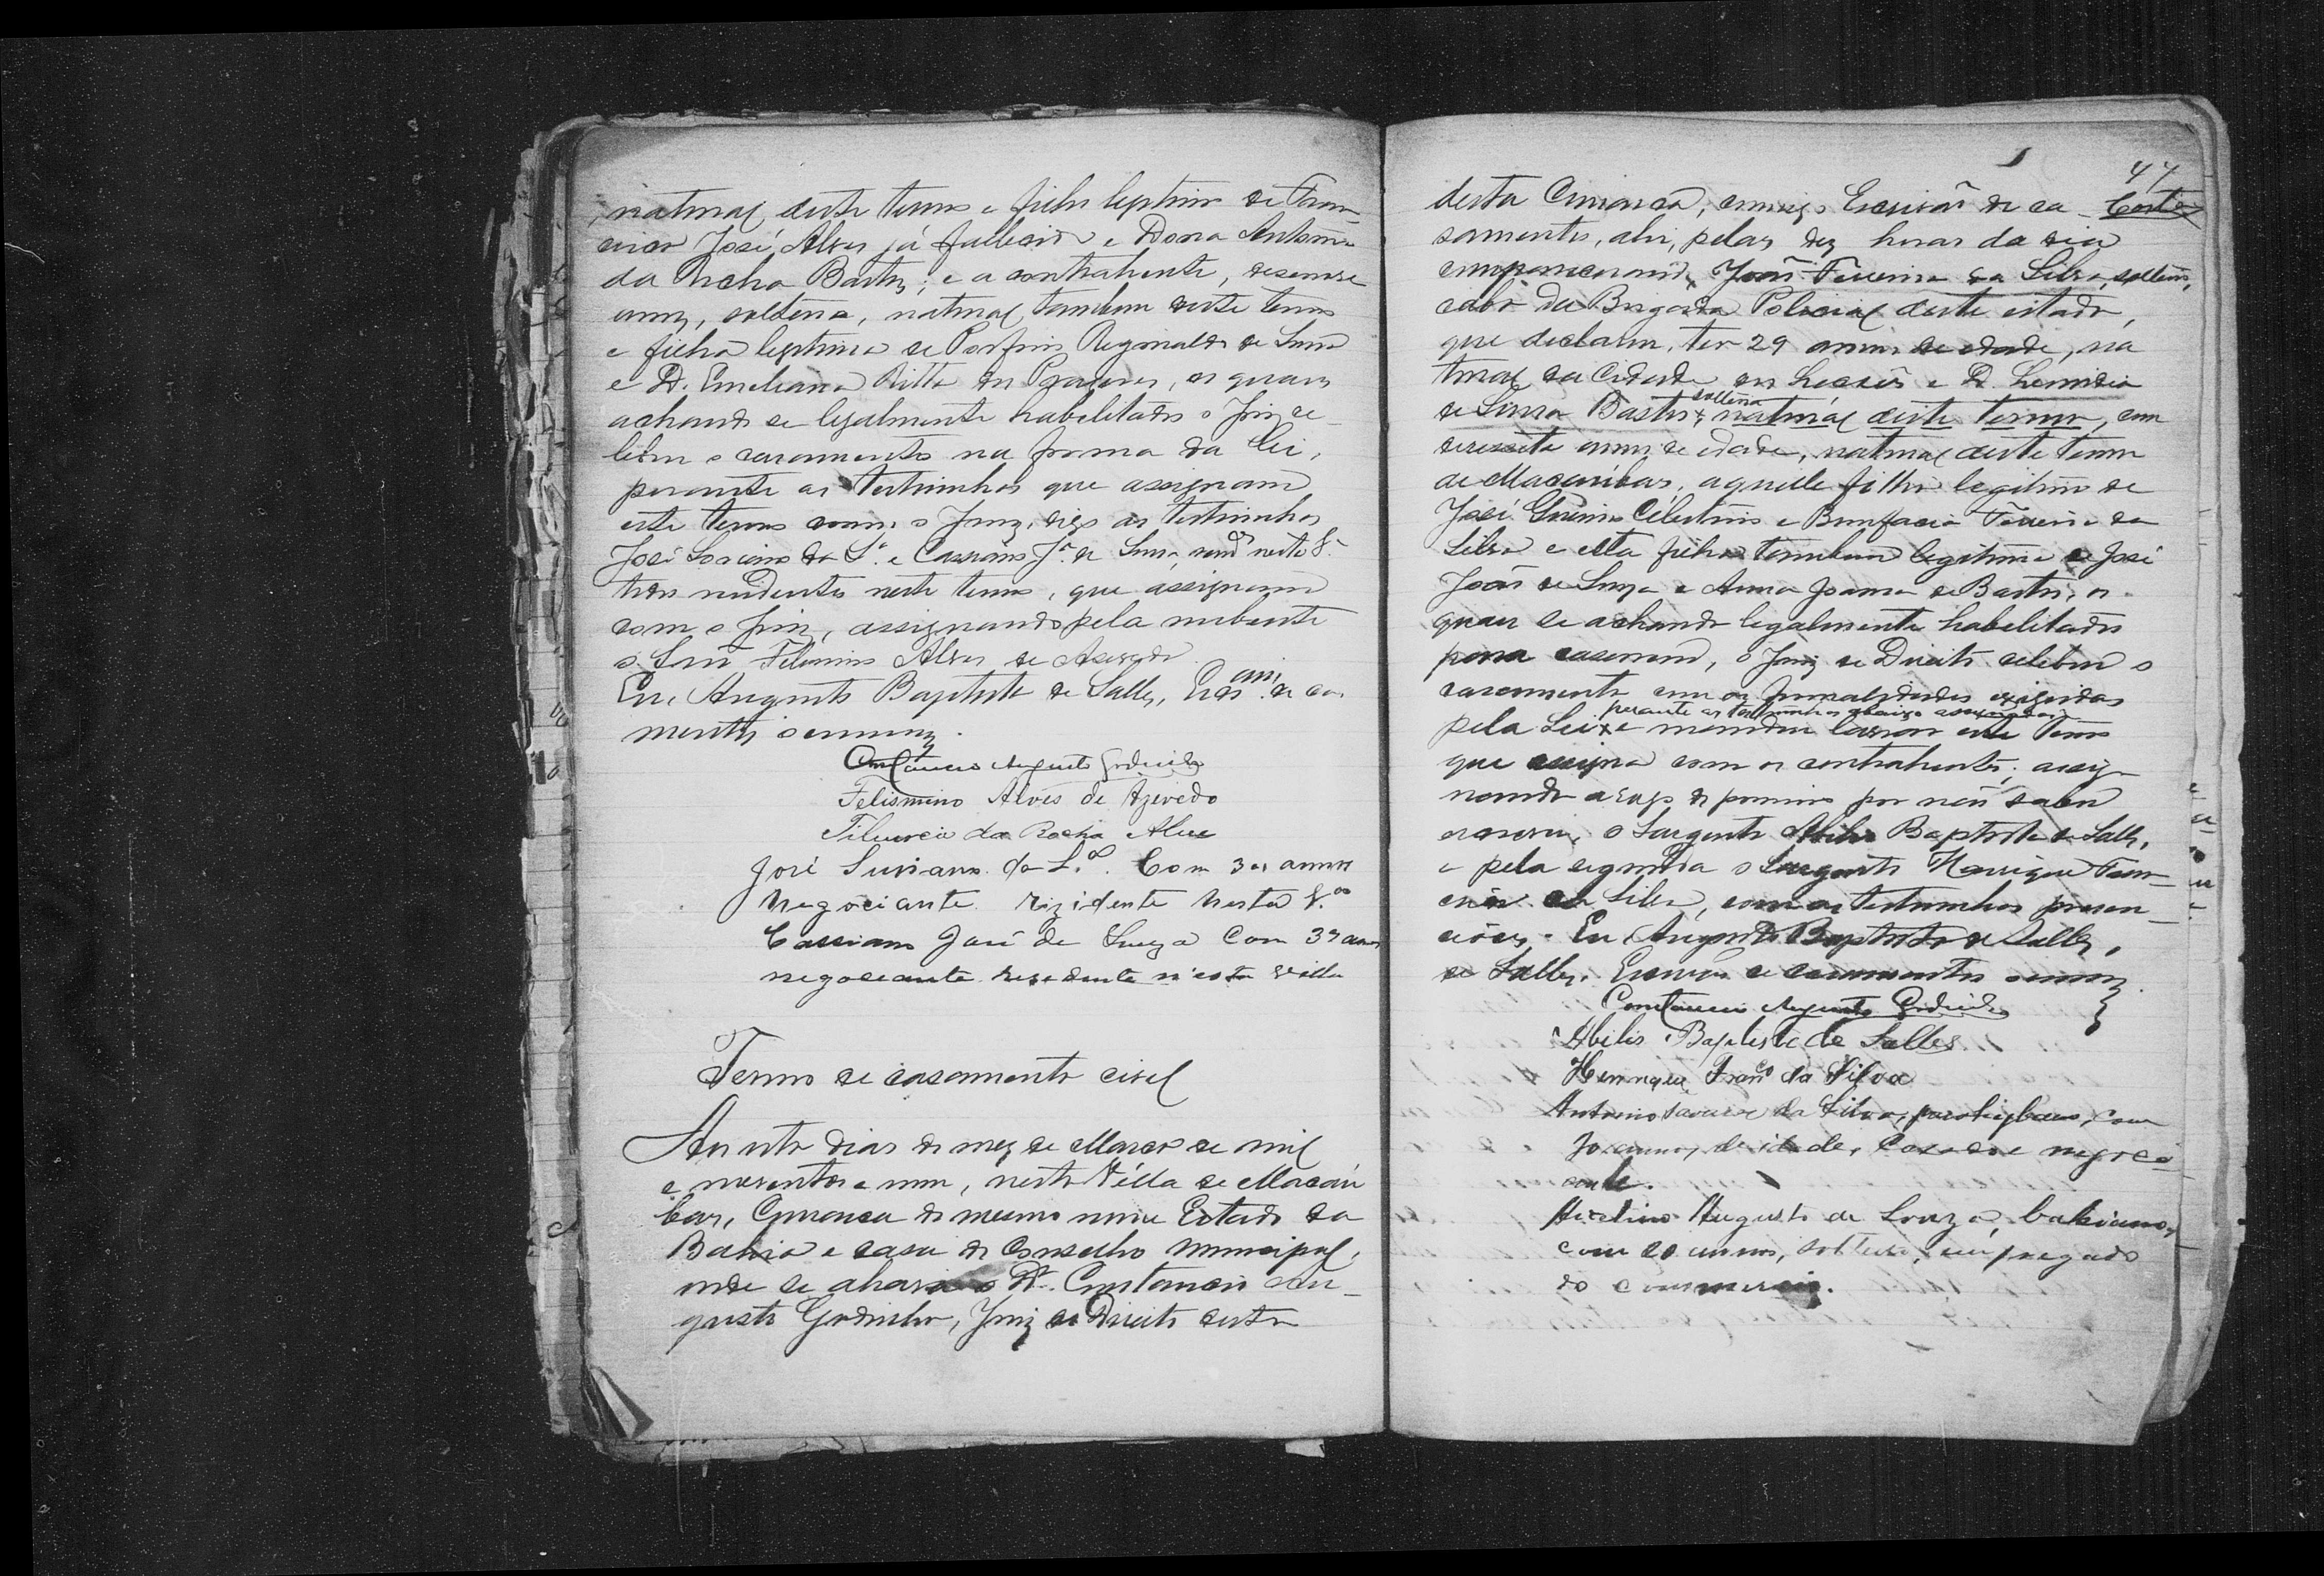 natural deste termo e filho legitimo de Fran-
cisco José Alves já fallecido e Dona Antonia
da Rocha Bastos; e a contrahente, desenove
annos, solteira, natural tambem deste termo
e filha legitima de Porfirio Reginaldo de Sousa
e D. Emeliana Ritta dos Prazeres, os quaes
achando se legalmente habelitados o Juiz ce-
lebrou o casamento na forma da lei,
perante as testimunhas que assignam
este termo com o Juiz, digo as testimunhas
José Soriano da S.ª e Cassiano J.é de Sousa, nesta V.ª
todos residentes neste termo, que assignam
com o Juiz, assignando pela nubente
o Snr Felismino Alves de Azevedo.
Eu, Augusto Baptista de Salles, Escrivão de ca-
mentos o escrevy.
Constancio Augusto Godinho
Felismino Alves de Azevedo
da Rocha Alves
José Suriano da S.ª Com 30 annos
negociante rizidente nesta V.ª
Cassiano José de Souza Com 37 annos
negociante residente n'esta villa
Termo de casamento civel
Ao oito dias do mez de Março de mil
e novecentos e um, nesta Villa de Macau-
bas, Comarca do mesmo nome Estado da
Bahia e casa do Conselho Municipal,
onde se achava o Dr. Constancio Au-
gusto Godinho, Juiz de Direito desta
47
desta Comarca, commigo Escrivão de ca-
samentos, ahi, pelas dez horas do dia
compareceram João Ferreira da Silva, solteiro,
cabo da Brigada Policial deste estado,
que declarou ter 29 annos de edade, na
tural da Cidade de Lençóes e D. Leonidia
de Sousa Bastos, solteira natural deste termo, com
desessete annos de edade, natural deste termo
de Macaúbas, aquelle filho legitimo de
José Celestino e Bonifacia Ferreira da
Silva e esta filha tambem legitima de José
João de Souza e Anna Joanna de Bastos, os
quaes se achando legalmente habelitados
para casarem, o Juiz de Direito celebrou o
casamento com as formalidades exigidas
perante as testimunhas abaixo assignadas
pela Lei e mandou lavrar este termo
que assigna com os contrahentes; assig-
nando a rogo do primeiro por não saber
escrever, o Sargento Abilio Baptista de Salles,
e pela segunda o Sargento Henrique Fran-
cisco da Silva, com as testimunhas presen-
ciaes. Eu Augusto Baptista de Salles,
de Salles, Escrivão de casamentos o escrevy
Constancio Augusto Godinho
Abilio Baptista de Salles
Henrique Franco da Silva
Antonio da Silva, parahybano, com
annos de idade, Casado e negoci-
ante.
Avelino Augusto de Souza, bahiano,
com 20 annos, solteiro, empregado
do commercio.